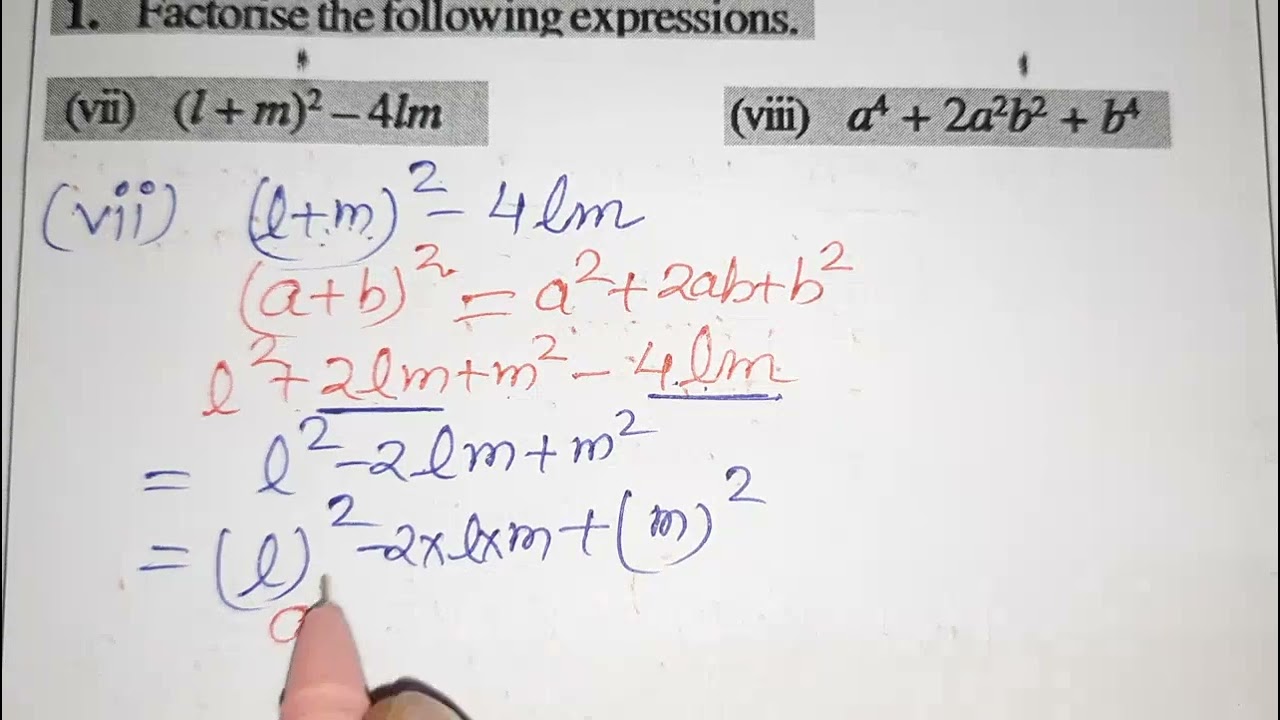 1. Factorise the following expressions.
(vii) (l + m)² – 4lm
(viii) a⁴ + 2a²b² + b⁴
(vii) (l+m)² – 4lm
(a+b)² = a²+2ab+b²
l²+2lm+m² – 4lm
= l²–2lm+m²
= (l)²–2×l×m+(m)²
a